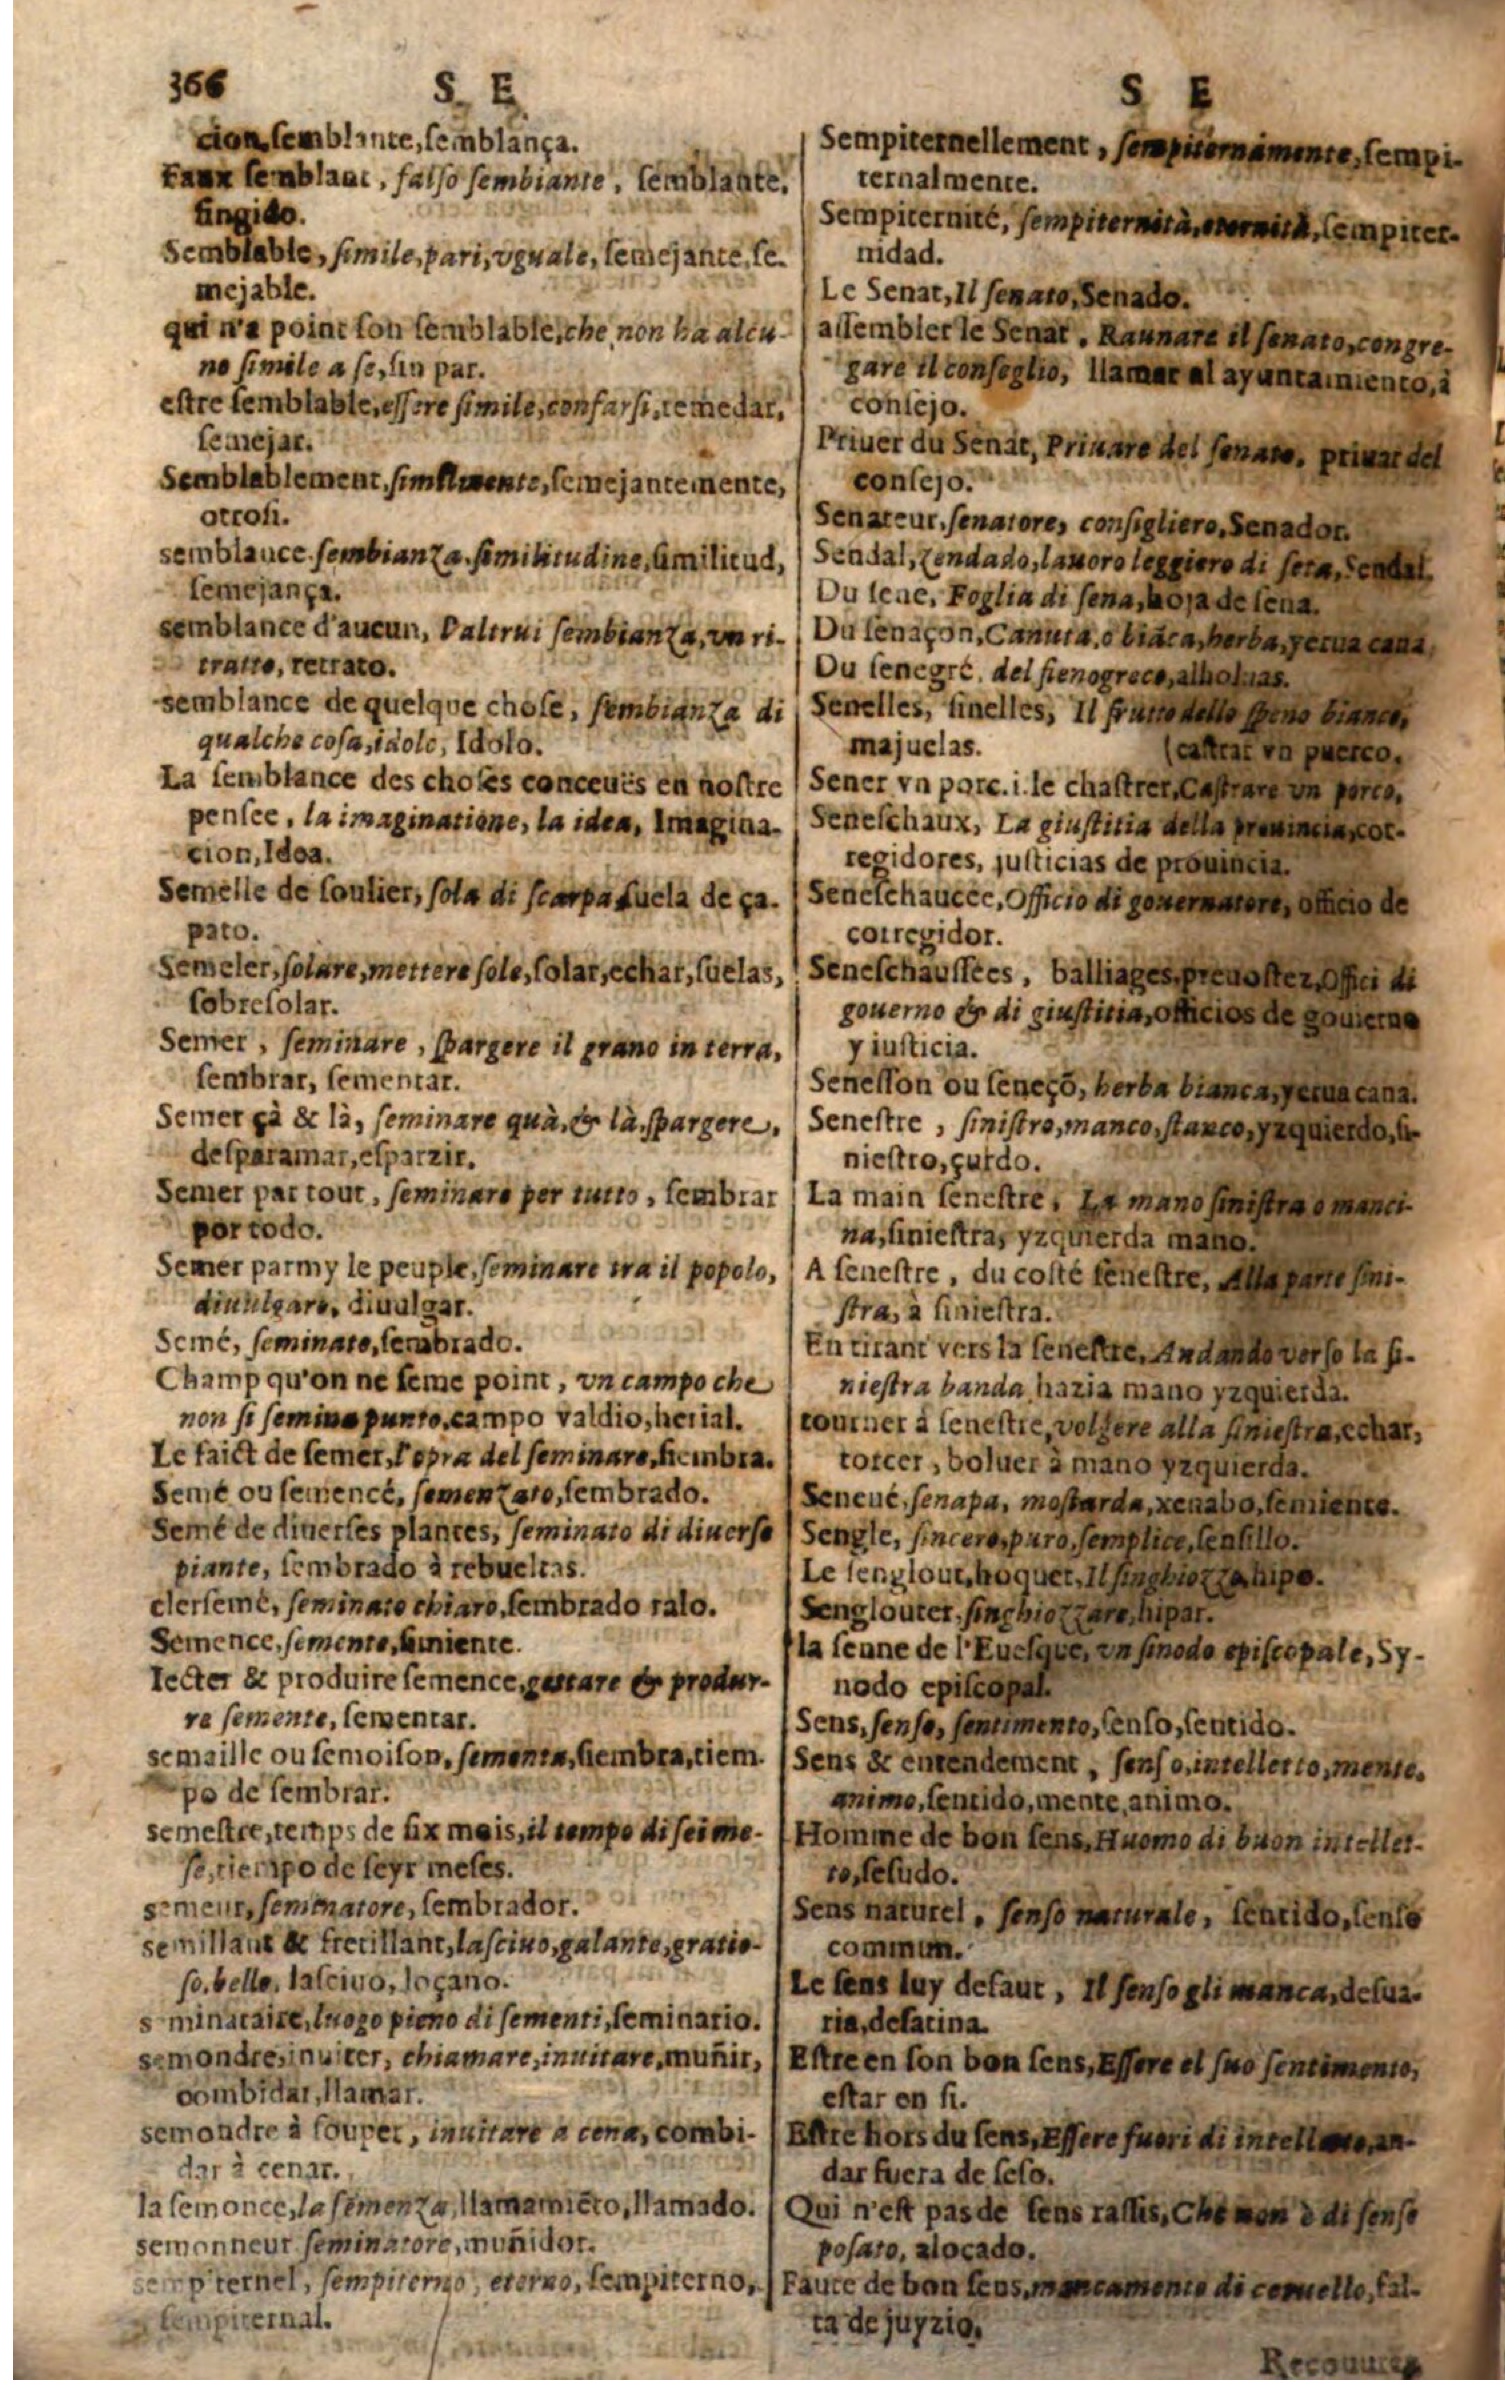 366 S E
cion, ſemblante, ſemblança.
Faux ſemblant, falſo ſembiante, ſemblante,
fingido.
Semblable, ſimile, pari, vguale, ſemejante, ſe-
mejable.
qui n'a point ſon ſemblable, che non ha alcu-
no ſimile a ſe, ſin par.
eſtre ſemblable, eſſere ſimile, confarſi, remedar,
ſemejar.
Semblablement, ſimilmente, ſemejantemente,
otroſi.
semblance ſembianza, ſimilitudine, ſimilitud,
ſemejança.
semblance d'aucun, l'altrui ſembianza, vn ri-
tratto, retrato.
semblance de quelque choſe, ſembianza di
qualche coſa, idolo, Idolo.
La ſemblance des choſes conceuës en noſtre
penſee, la imaginatione, la idea, Imagina-
cion, Idea.
Semelle de ſoulier, ſola di ſcarpa, ſuela de ça-
pato.
Semeler, ſolare, mettere ſole, ſolar, echar, ſuelas,
ſobreſolar.
Semer, ſeminare, ſpargere il grano in terra,
ſembrar, ſementar.
Semer çà & là, ſeminare quà, & là, ſpargere,
deſparamar, eſparzir.
Semer par tout, ſeminare per tutto, ſembrar
por todo.
Semer parmy le peuple, ſeminare tra il popolo,
diuulgare, diuulgar.
Semé, ſeminato, ſembrado.
Champ qu'on ne ſeme point, vn campo che
non ſi ſemina punto, campo valdio, herial.
Le faict de ſemer, l'opra del ſeminare, ſiembra.
Semé ou ſemencé, ſemenzato, ſembrado.
Semé de diuerſes plantes, ſeminato di diuerſe
piante, ſembrado à rebueltas.
clerſemé, ſeminato chiaro, ſembrado ralo.
Semence, ſemente, ſimiente.
Iecter & produire ſemence, gettare & produr-
re ſemente, ſementar.
semaille ou ſemoiſon, ſementa, ſiembra, tiem-
po de ſembrar.
semeſtre, temps de ſix mois, il tempo di ſei me-
ſe, tiempo de ſeyr meſes.
semeur, ſeminatore, ſembrador.
semillant & fretillant, laſciuo, galante, gratio-
ſo, bello, laſciuo, loçano.
seminataire, luogo pieno di ſementi, ſeminario.
semondre, inuiter, chiamare, inuitare, muñir,
combidar, llamar.
semondre à ſouper, inuitare a cena, combi-
dar à cenar.
la ſemonce, la ſemenza, llamamiẽto, llamado.
semonneur ſeminatore, muñidor.
sempiternel, ſempiterno, eterno, ſempiterno,
ſempiternal.
S E
Sempiternellement, ſempiternamente, ſempi-
ternalmente.
Sempiternité, ſempiternità, eternità, ſempiter-
nidad.
Le Senat, Il ſenato, Senado.
aſſembler le Senat, Raunare il ſenato, congre-
gare il conſeglio, llamar al ayuntamiento, à
conſejo.
Priuer du Senat, Priuare del ſenato, priuar del
conſejo.
Senateur, ſenatore, conſigliero, Senador.
Sendal, zendado, lauoro leggiero di ſeta, Sendal.
Du ſene, Foglia di ſena, hoja de ſena.
Du ſenaçon, Canuta, o biãca, herba, yerua cana,
Du ſenegré, del fienogreco, alholuas.
Senelles, ſinelles, Il frutto dello ſpeno bianco,
majuelas. (caſtrar vn puerco.
Sener vn porc. i. le chaſtrer, Caſtrare vn porco,
Seneſchaux, La giuſtitia della prouincia, cor-
regidores, juſticias de prouincia.
Seneſchaucee, Officio di gouernatore, officio de
corregidor.
Seneſchauſſees, balliages, preuoſtez, Offici di
gouerno & di giuſtitia, officios de gouierno
y iuſticia.
Seneſſon ou ſeneçõ, herba bianca, yerua cana.
Seneſtre, ſiniſtro, manco, ſtanco, yzquierdo, ſi-
nieſtro, çurdo.
La main ſeneſtre, La mano ſiniſtra o manci-
na, ſinieſtra, yzquierda mano.
A ſeneſtre, du coſté ſeneſtre, Alla parte ſini-
ſtra, à ſinieſtra.
En tirant vers la ſeneſtre, Andando verſo la ſi-
nieſtra banda, hazia mano yzquierda.
tourner à ſeneſtre, volgere alla ſinieſtra, echar,
torcer, boluer à mano yzquierda.
Seneué, ſenapa, moſtarda, xenabo, ſemiente.
Sengle, ſincero, puro, ſemplice, ſenſillo.
Le ſenglout, hoquet, Il ſinghiozzo, hipo.
Sengloutter, ſinghiozzare, hipar.
la ſenne de l'Eueſque, vn ſinodo epiſcopale, Sy-
nodo epiſcopal.
Sens, ſenſo, ſentimento, ſenſo, ſentido.
Sens & entendement, ſenſo, intelletto, mente,
animo, ſentido, mente, animo.
Homme de bon ſens, Huomo di buon intellet-
to, ſeſudo.
Sens naturel, ſenſo naturale, ſentido, ſenſo
commun.
Le ſens luy defaut, Il ſenſo gli manca, deſua-
ria, deſatina.
Eſtre en ſon bon ſens, Eſſere el ſuo ſentimento,
eſtar en ſi.
Eſtre hors du ſens, Eſſere fuori di intelletto, an-
dar fuera de ſeſo.
Qui n'eſt pas de ſens raſſis, Che non è di ſenſo
poſato, alocado.
Faute de bon ſens, mancamento di ceruello, fal-
ta de juyzio.
Recouurer